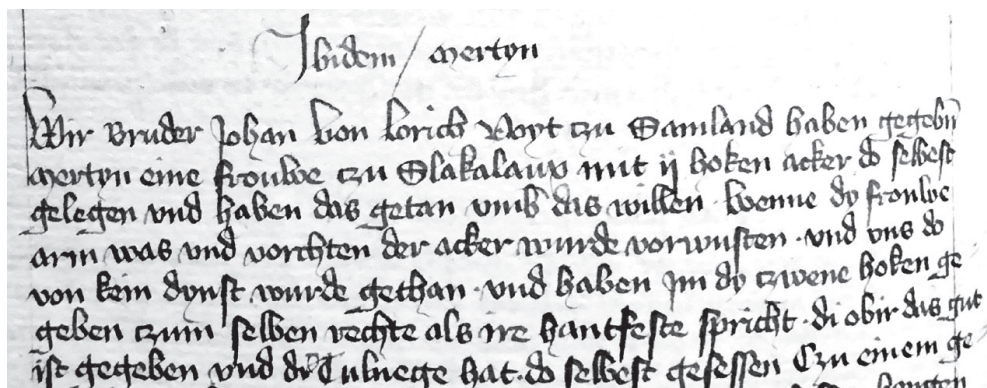 Ibidem / Merton
Wir Bruder Johan von Lorich Voyt czu Samland haben gegebin
Merton eine frouwe czu Slakalaux mit ij hoken acker do selbest
gelegen vnd haben das getan vmb das willen. wenne dy frouwe
arm was vnd vorchten der acker wurde vorwusten. vnd vns do
von kein dynst wurde gethan. vnd haben Jm dy czwene hoken ge
geben czum selben rechte als ire hantfeste spricht. di obir das gut
ist gegeben vnd hat. do selbest gesessen Czu einem ge